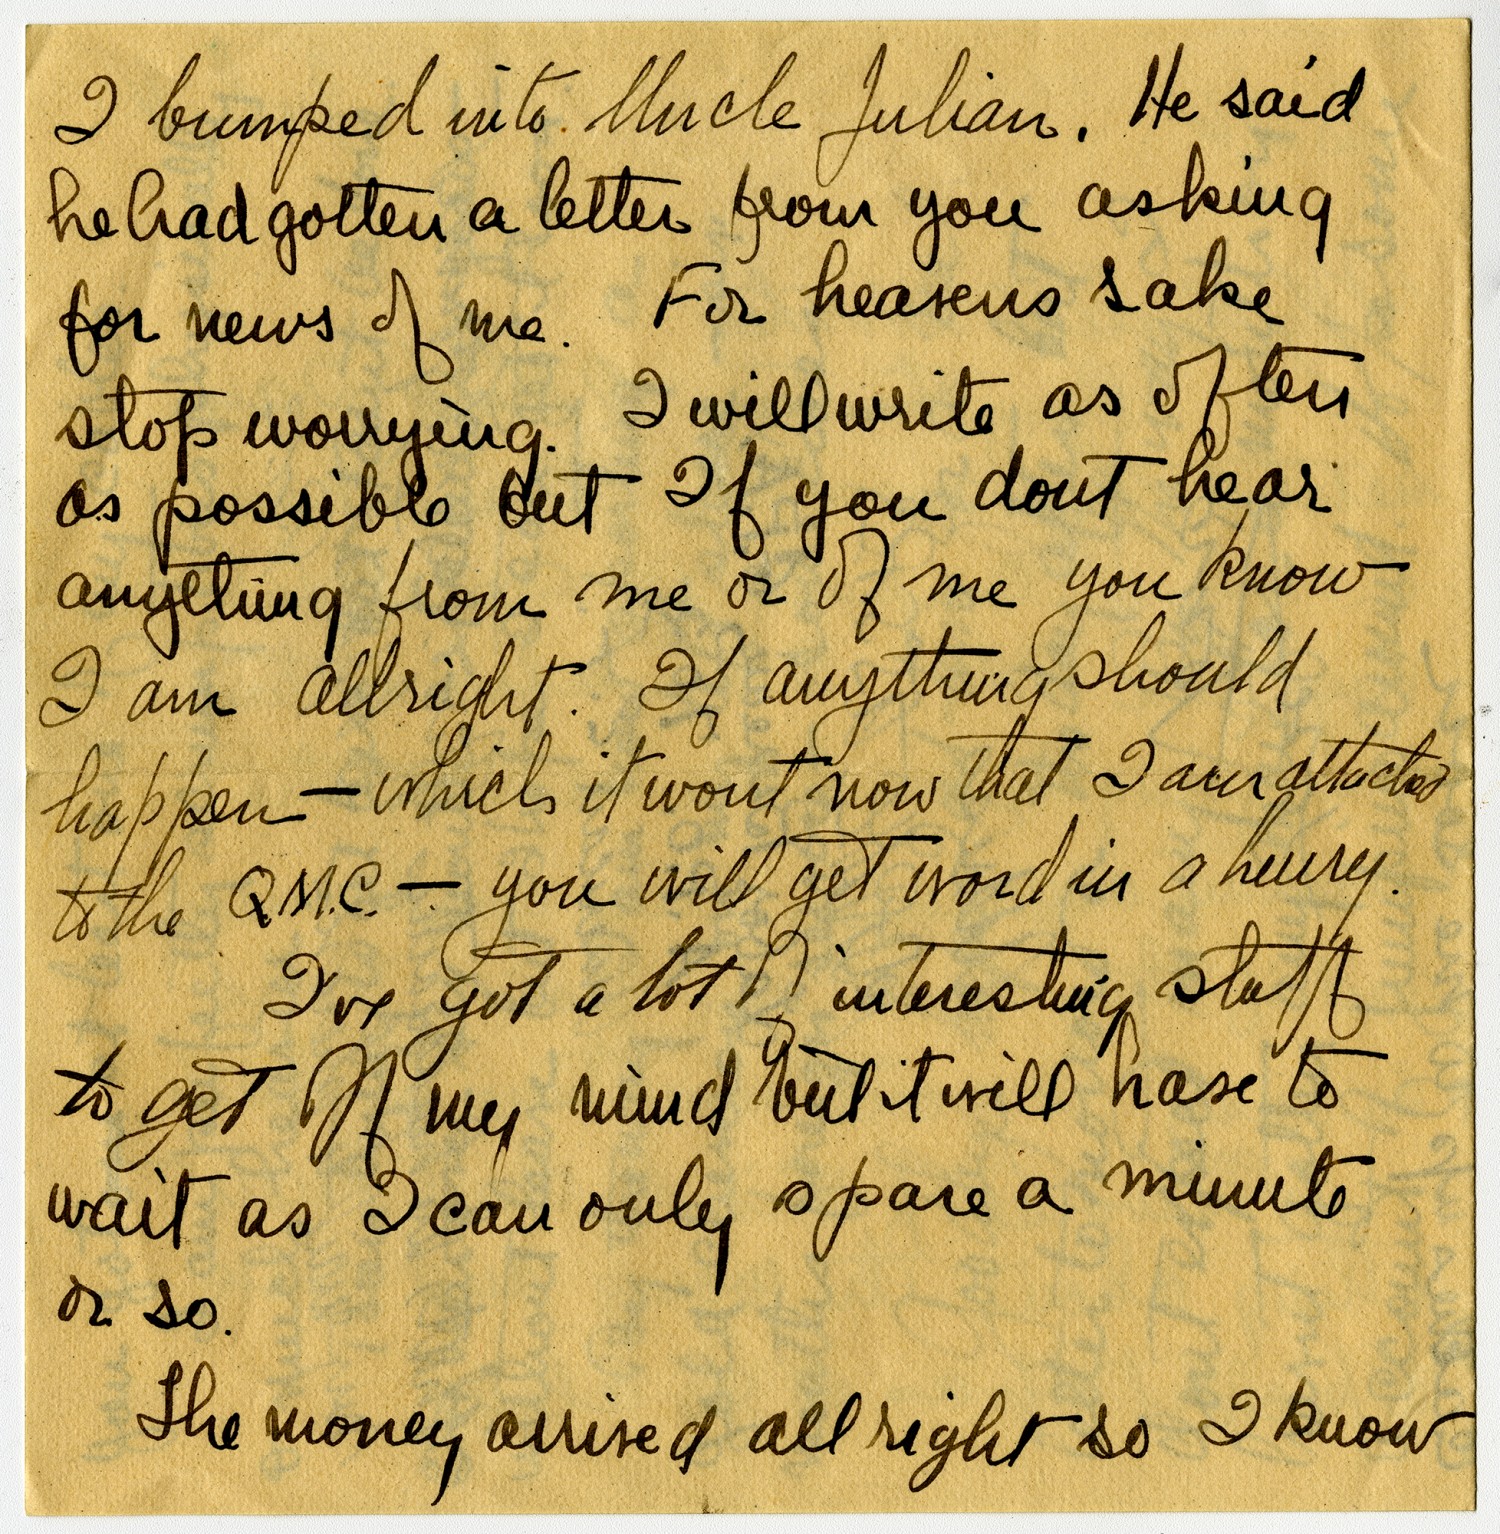 I bumped into Uncle Julian. He said
he had gotten a letter from you asking
for news of me. For heavens sake
stop worrying. I will write as often
as possible but If you dont hear
anything from me or of me you know
I am allright. If anything should
happen — which it wont now that I am attached
to the Q.M.C. — you will get word in a hurry.
I've got a lot of interesting stuff
to get off my mind but it will have to
wait as I can only spare a minute
or so.
The money arrived all right so I know